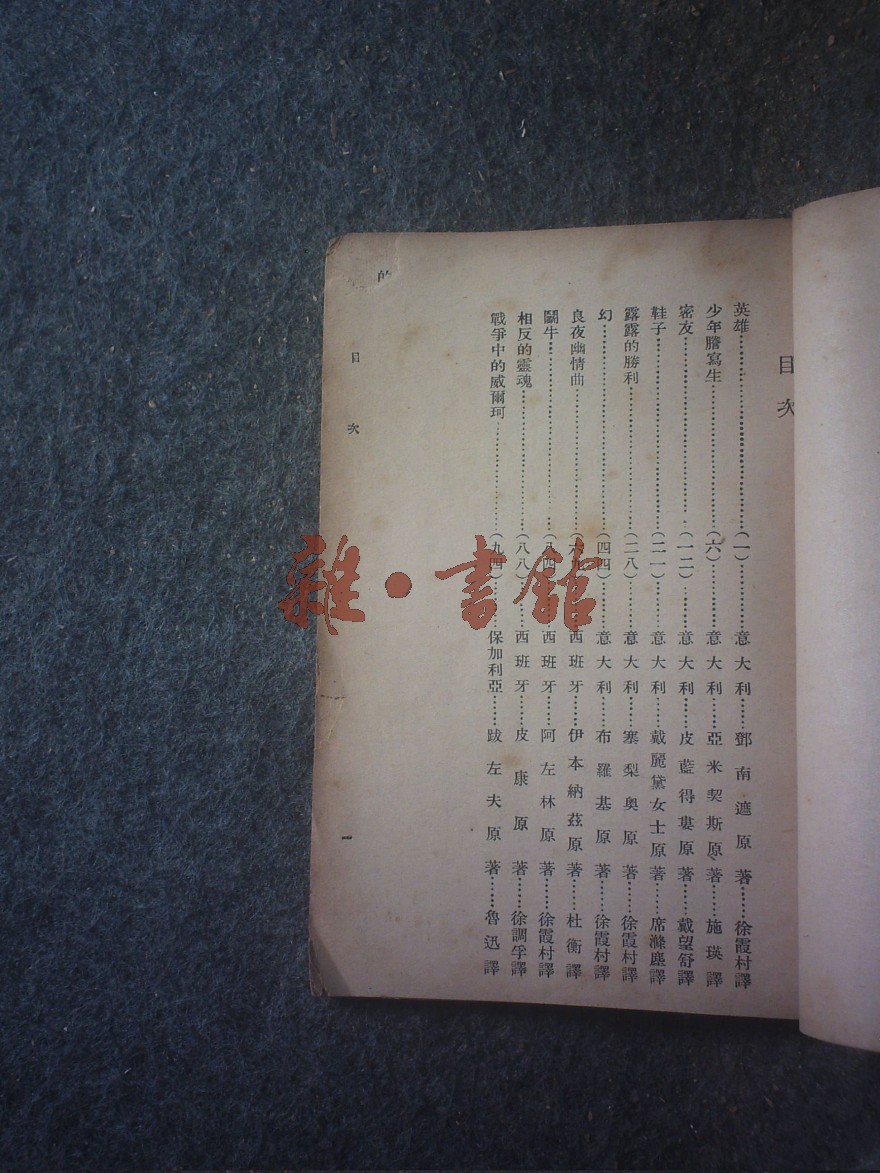 目次
英雄……(一)……意大利……鄧南遮原著……徐霞村譯
少年謄寫生……(六)……意大利……亞米契斯原著……施瑛譯
密友……(一二)……意大利……皮藍得婁原著……戴望舒譯
鞋子……(二一)……意大利……戴麗黛女士原著……席滌塵譯
露露的勝利……(二八)……意大利……塞梨奧原著……徐霞村譯
幻……(四四)……意大利……布羅基原著……徐霞村譯
良夜幽情曲……(六九)……西班牙……伊本納茲原著……杜衡譯
鬭牛……(八四)……西班牙……阿左林原著……徐霞村譯
相反的靈魂……(八八)……西班牙……皮康原著……徐調孚譯
戰爭中的威爾珂……(九四)……保加利亞……跋左夫原著……魯迅譯
的
目次
一
雜·書館